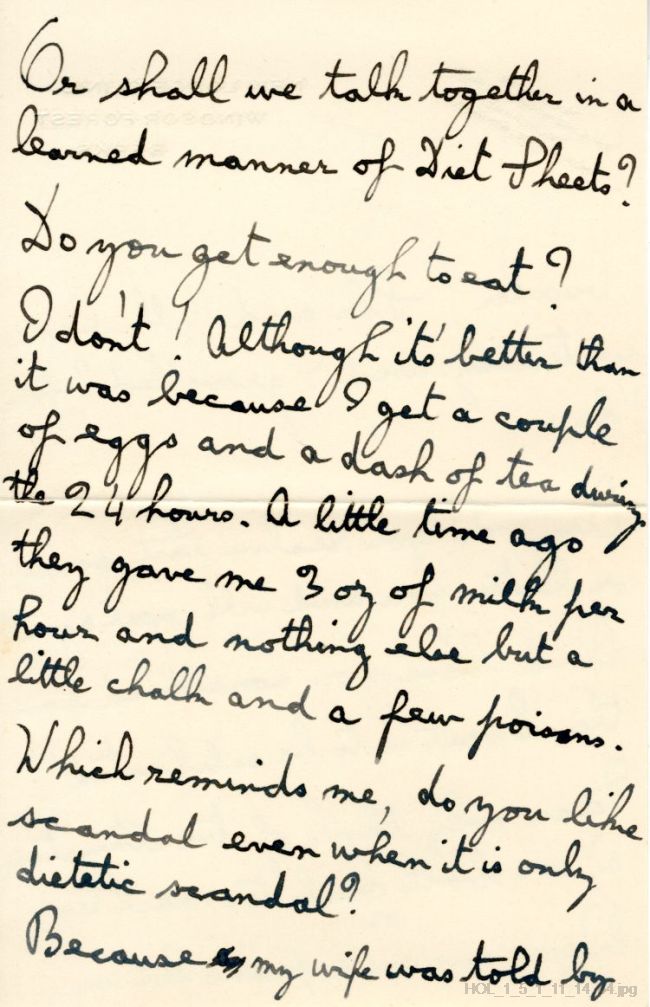 Or shall we talk together in a
learned manner of Diet Sheets?
Do you get enough to eat?
I don't! Although it's better than
it was because I get a couple
of eggs and a dash of tea during
the 24 hours. A little time ago
they gave me 3 oz of milk per
hour and nothing else but a
little chalk and a few poisons.
Which reminds me, do you like
scandal even when it is only
dietetic scandal?
Because my wife was told by